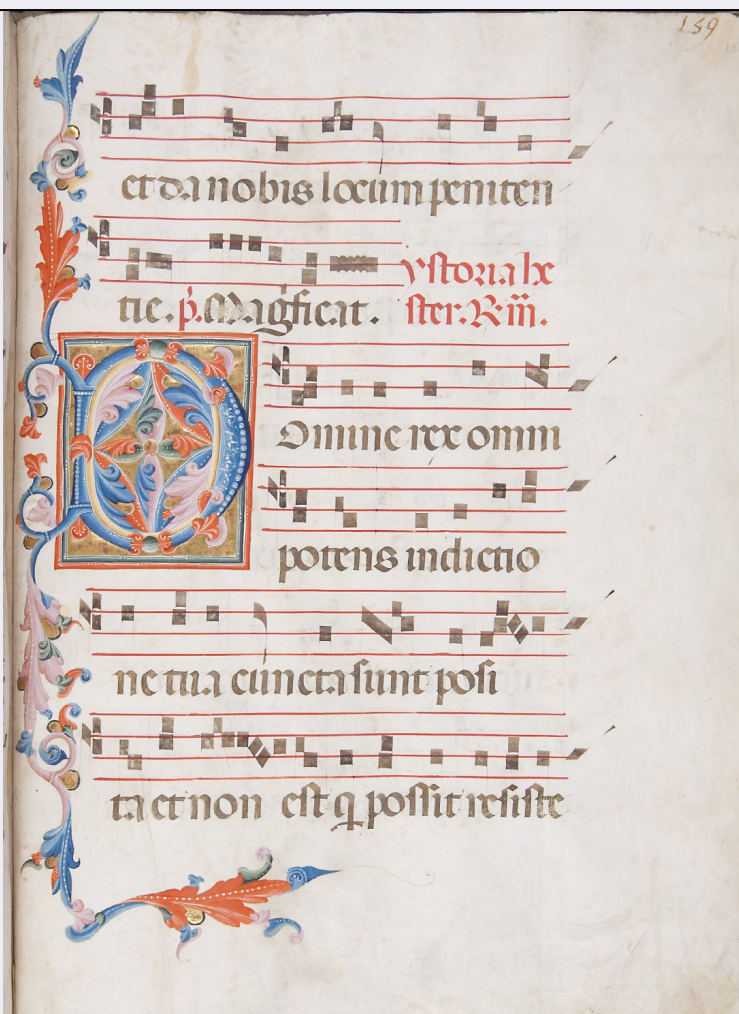 159
et da nobis locum peniten
tie. p̄. Magficat. ystoria he
ster. R̄m̄.
Domine rex omni
potens in dictio
ne tua cuncta sunt posi
ta et non est q possit resiste